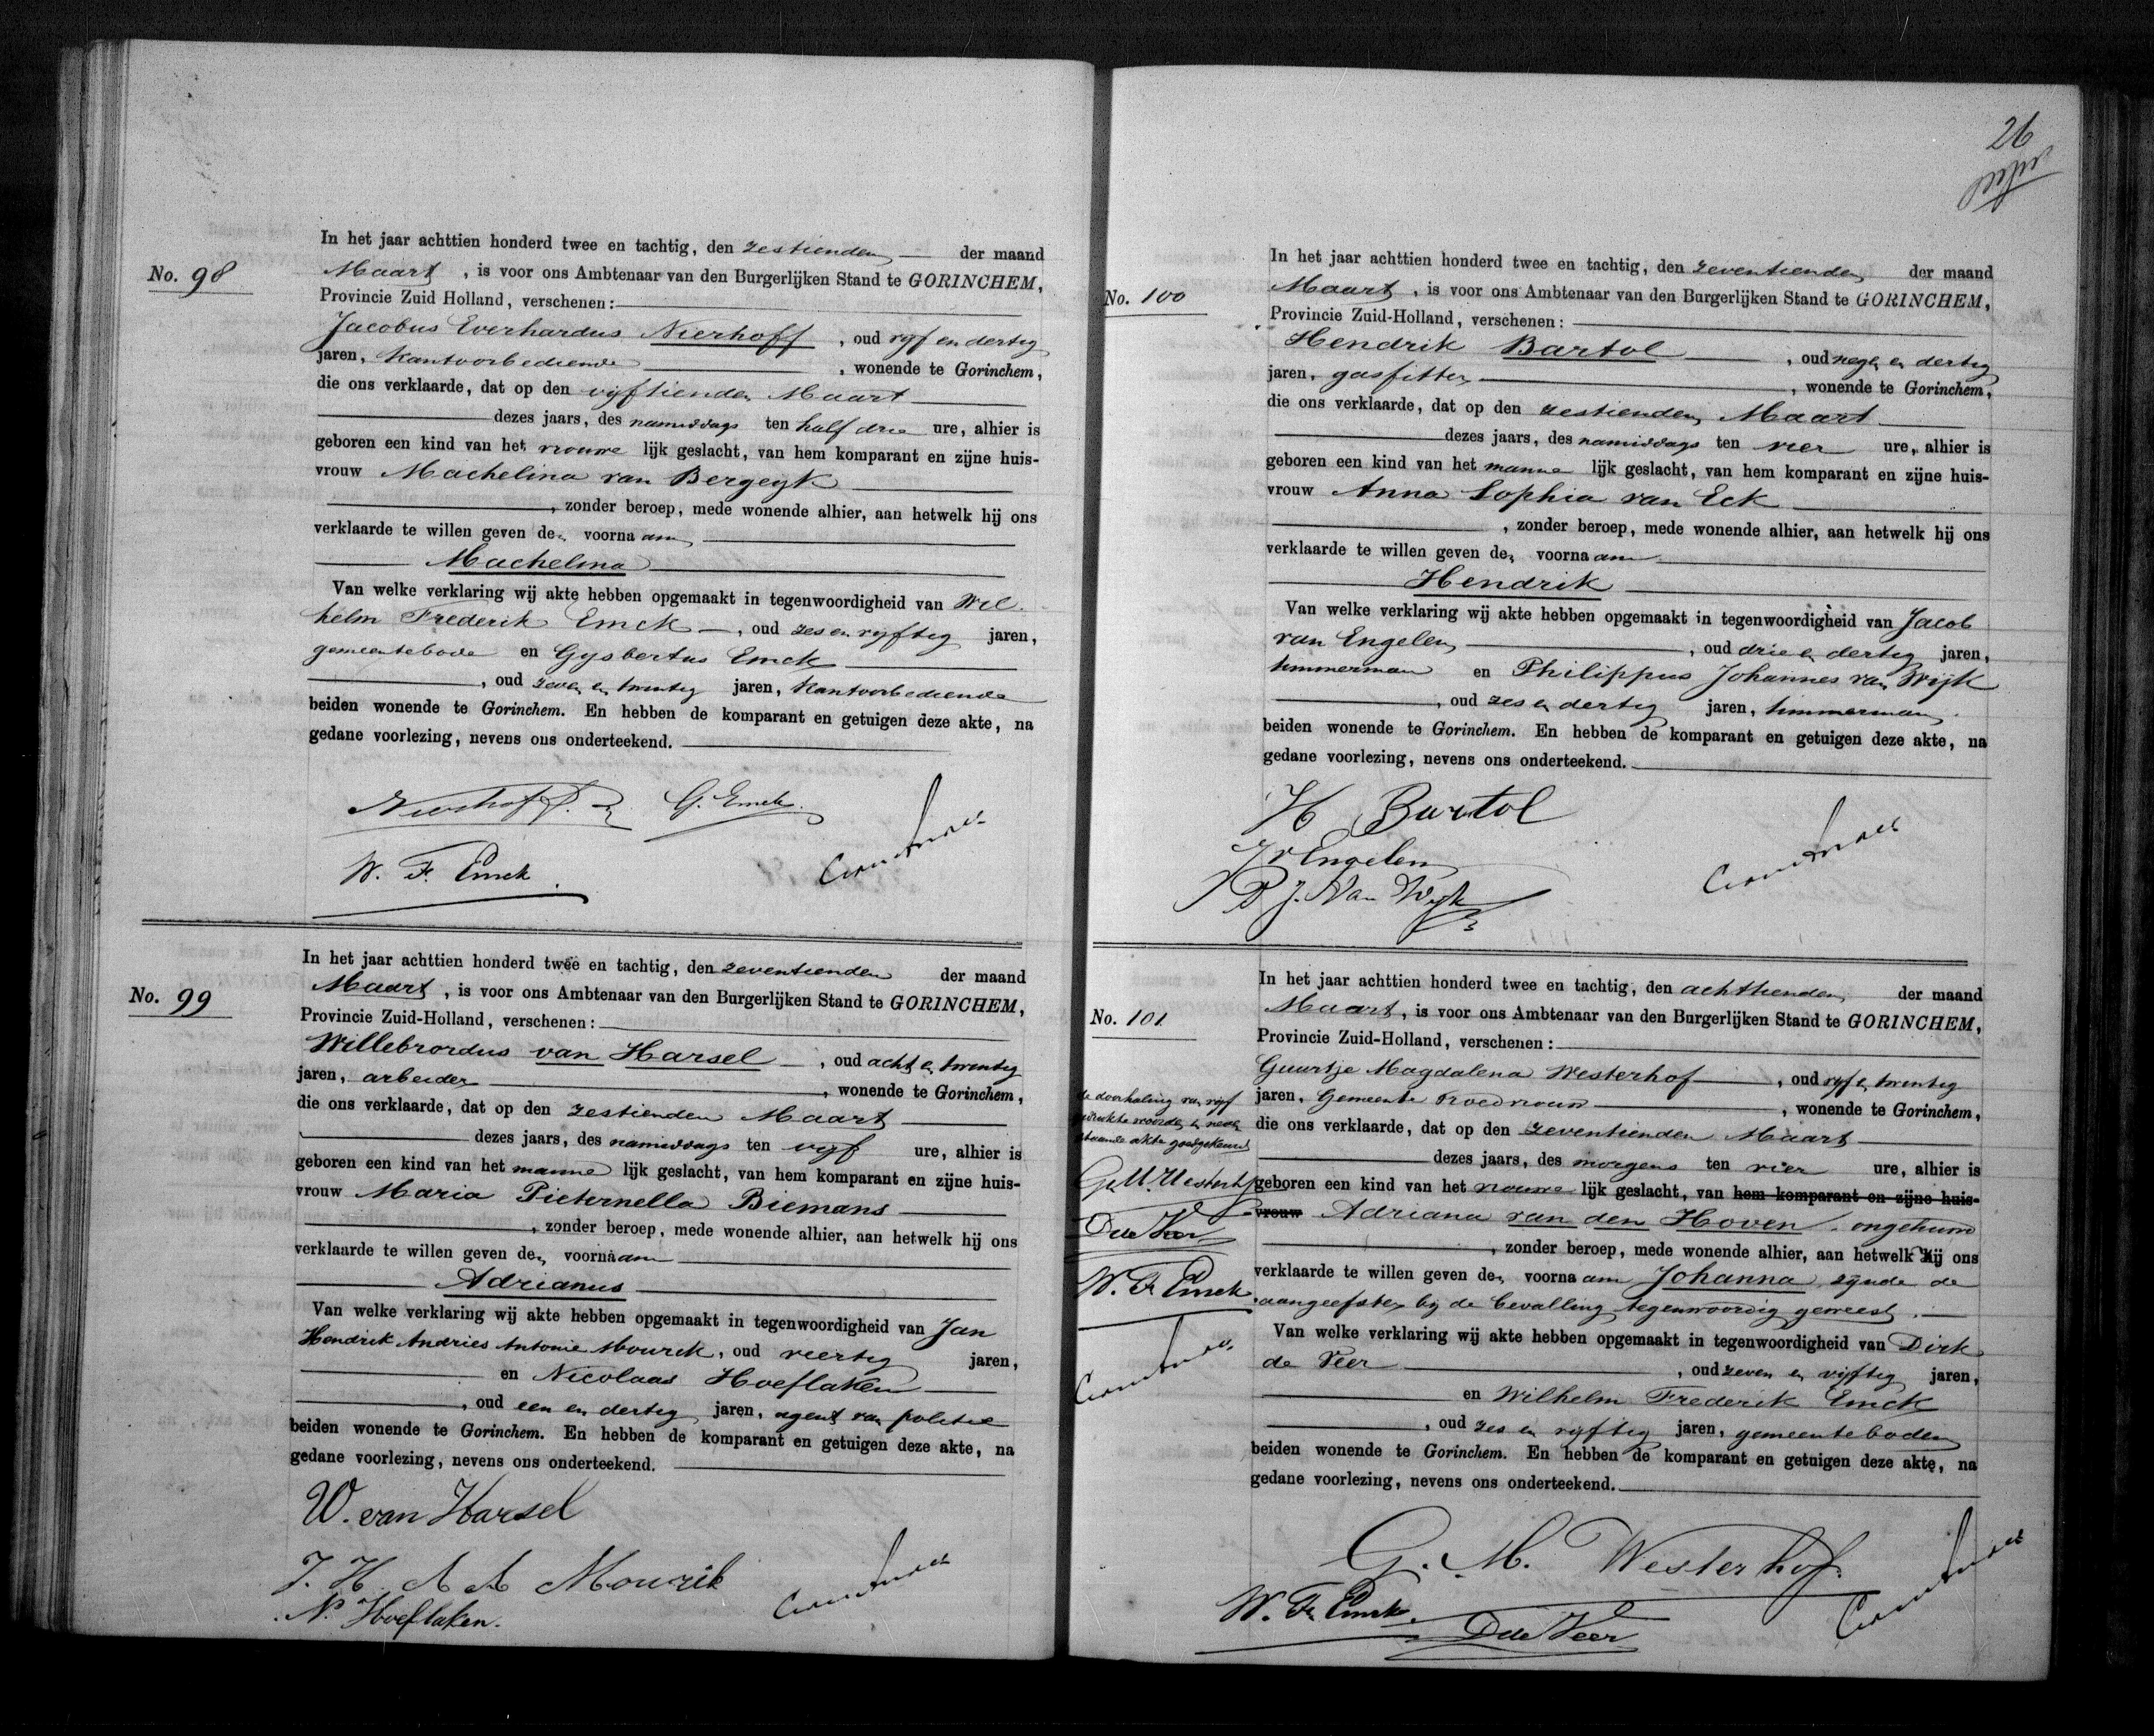 No. 98
In het jaar achttien honderd twee en tachtig, den zestienden der maand
Maart, is voor ons Ambtenaar van den Burgerlijken Stand te GORINCHEM,
Provincie Zuid Holland, verschenen:
Jacobus Everhardus Nierhoff, oud vyf en dertig
jaren, Kantoorbediende, wonende te Gorinchem,
die ons verklaarde, dat op den vyftienden Maart
dezes jaars, des namiddags ten half drie ure, alhier is
geboren een kind van het vrouwe lijk geslacht, van hem komparant en zijne huis-
vrouw Machelina van Bergeyk
, zonder beroep, mede wonende alhier, aan hetwelk hij ons
verklaarde te willen geven den voornaam
Machelina
Van welke verklaring wij akte hebben opgemaakt in tegenwoordigheid van Wil
helm Frederik Emck, oud zes en vyftig jaren,
gemeentebode en Gysbertus Emck
, oud zeven en twintig jaren, Kantoorbediende
beiden wonende te Gorinchem. En hebben de komparant en getuigen deze akte, na
gedane voorlezing, nevens ons onderteekend.
Nierhoff. G. Emck.
W. F. Emck
No. 99
In het jaar achttien honderd twee en tachtig, den zeventienden der maand
Maart, is voor ons Ambtenaar van den Burgerlijken Stand te GORINCHEM,
Provincie Zuid-Holland, verschenen:
Willebrordus van Harsel, oud acht en twintig
jaren, arbeider, wonende te Gorinchem,
die ons verklaarde, dat op den zestienden Maart
dezes jaars, des namiddags ten vyf ure, alhier is
geboren een kind van het manne lijk geslacht, van hem komparant en zijne huis-
vrouw Maria Pieternella Biemans
, zonder beroep, mede wonende alhier, aan hetwelk hij ons
verklaarde te willen geven den voornaam
Adrianus
Van welke verklaring wij akte hebben opgemaakt in tegenwoordigheid van Jan
Hendrik Andries Antonie Mourik, oud veertig jaren,
en Nicolaas Hoeflaken
, oud een en dertig jaren, agent van politie
beiden wonende te Gorinchem. En hebben de komparant en getuigen deze akte, na
gedane voorlezing, nevens ons onderteekend.
W. van Harsel
J. H. A A Mourik
N. Hoeflaken.
26
No. 100
In het jaar achttien honderd twee en tachtig, den zeventienden der maand
Maart, is voor ons Ambtenaar van den Burgerlijken Stand te GORINCHEM,
Provincie Zuid-Holland, verschenen:
Hendrik Bartol, oud negen en dertig
jaren, gasfitter, wonende te Gorinchem,
die ons verklaarde, dat op den zestienden Maart
dezes jaars, des namiddags ten vier ure, alhier is
geboren een kind van het manne lijk geslacht, van hem komparant en zijne huis-
vrouw Anna Sophia van Eck
, zonder beroep, mede wonende alhier, aan hetwelk hij ons
verklaarde te willen geven den voornaam
Hendrik
Van welke verklaring wij akte hebben opgemaakt in tegenwoordigheid van Jacob
van Engelen, oud drie en dertig jaren,
timmerman en Philippus Johannes van Wijk
, oud zes en dertig jaren, timmerman
beiden wonende te Gorinchem. En hebben de komparant en getuigen deze akte, na
gedane voorlezing, nevens ons onderteekend.
H Bartol
J v Engelen
P J. Van Wijk
No. 101
In het jaar achttien honderd twee en tachtig, den achttienden der maand
Maart, is voor ons Ambtenaar van den Burgerlijken Stand te GORINCHEM,
Provincie Zuid-Holland, verschenen:
Guurtje Magdalena Westerhof, oud vyf en twintig
jaren, Gemeente vroedvrouw, wonende te Gorinchem,
die ons verklaarde, dat op den zeventienden Maart
dezes jaars, des morgens ten vier ure, alhier is
geboren een kind van het vrouwe lijk geslacht, van hem komparant en zijne huis-
vrouw Adriana van den Hoven, ongehuwd
, zonder beroep, mede wonende alhier, aan hetwelk zij ons
verklaarde te willen geven den voornaam Johanna zijnde de
aangeefster bij de bevalling tegenwoordig geweest.
Van welke verklaring wij akte hebben opgemaakt in tegenwoordigheid van Dirk
de Veer, oud zeven en vijftig jaren,
en Wilhelm Frederik Emck
, oud zes en vyftig jaren, gemeenteboden
beiden wonende te Gorinchem. En hebben de komparant en getuigen deze akte, na
gedane voorlezing, nevens ons onderteekend.
de doorhaling van vyf
gedrukte woorden in neven
staande akte goedgekeurd
G. M. Westerhof
D de Veer
W. Fr Emck
G. M. Westerhof.
W. Fr Emck.
D de Veer